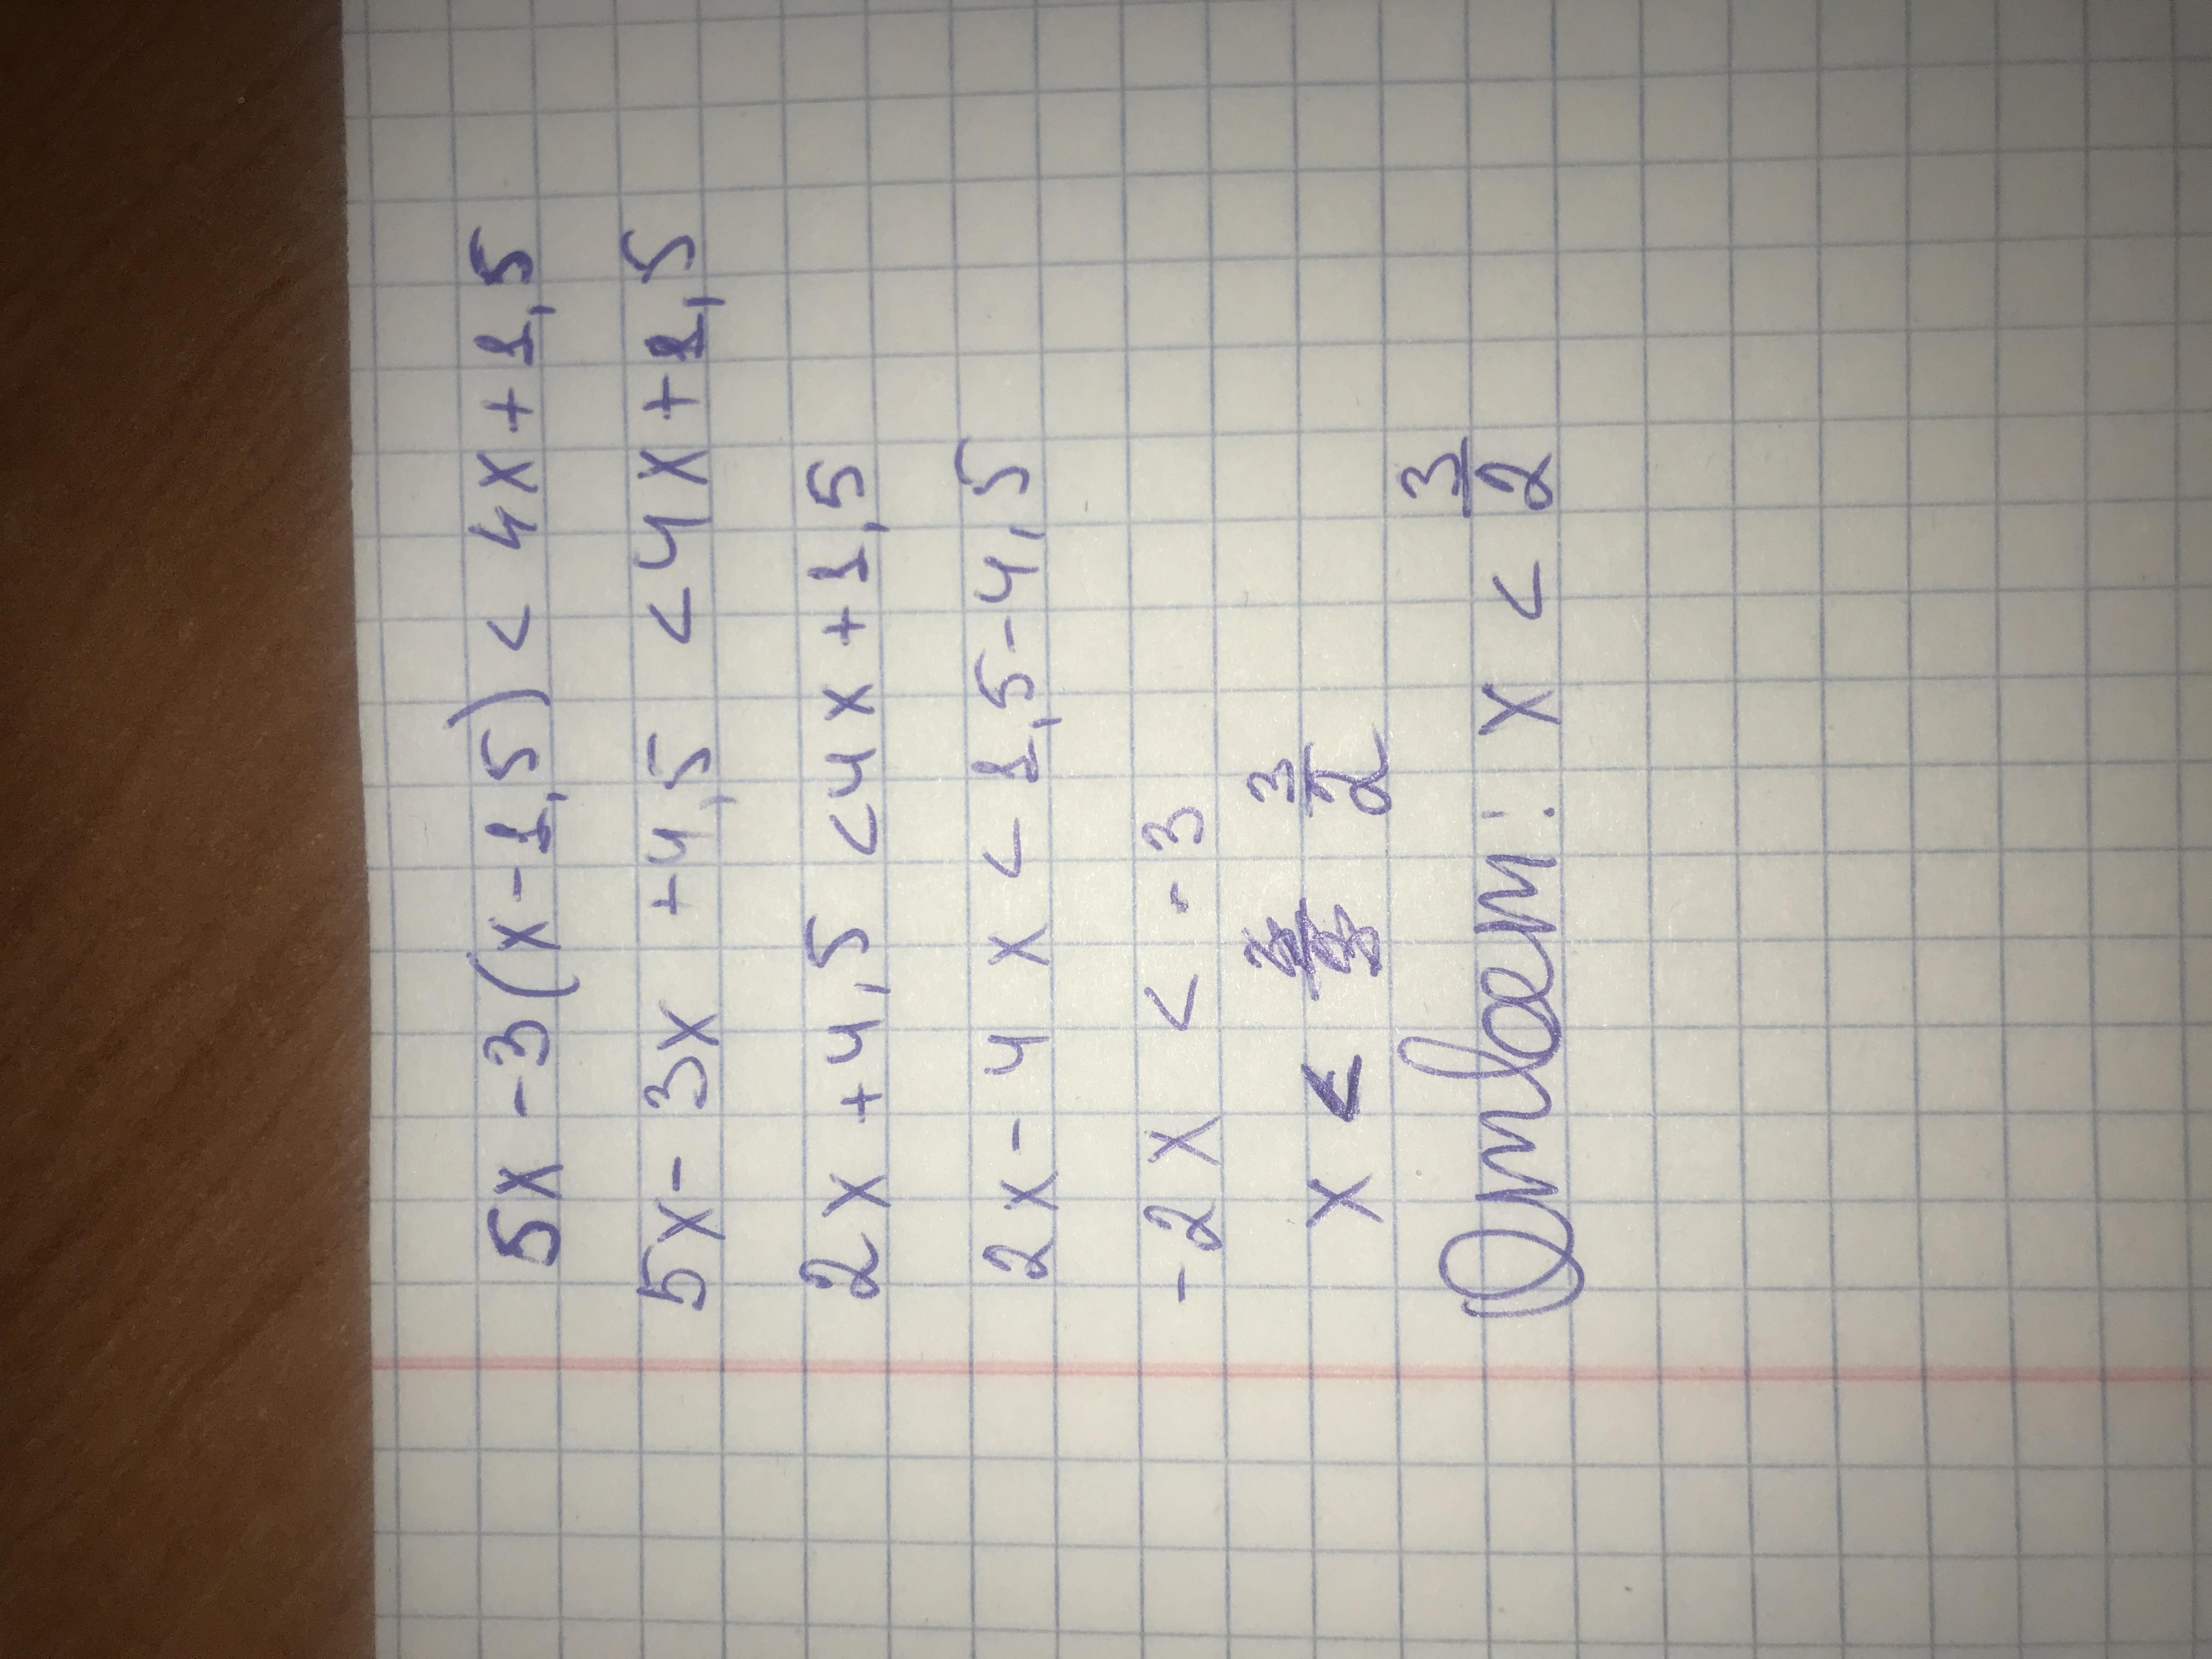 5x - 3(x - 1,5) < 4x + 1,5
5x - 3x + 4,5 < 4x + 1,5
2x + 4,5 < 4x + 1,5
2x - 4x < 1,5 - 4,5
-2x < -3
x < 3/2
Ответ: x < 3/2